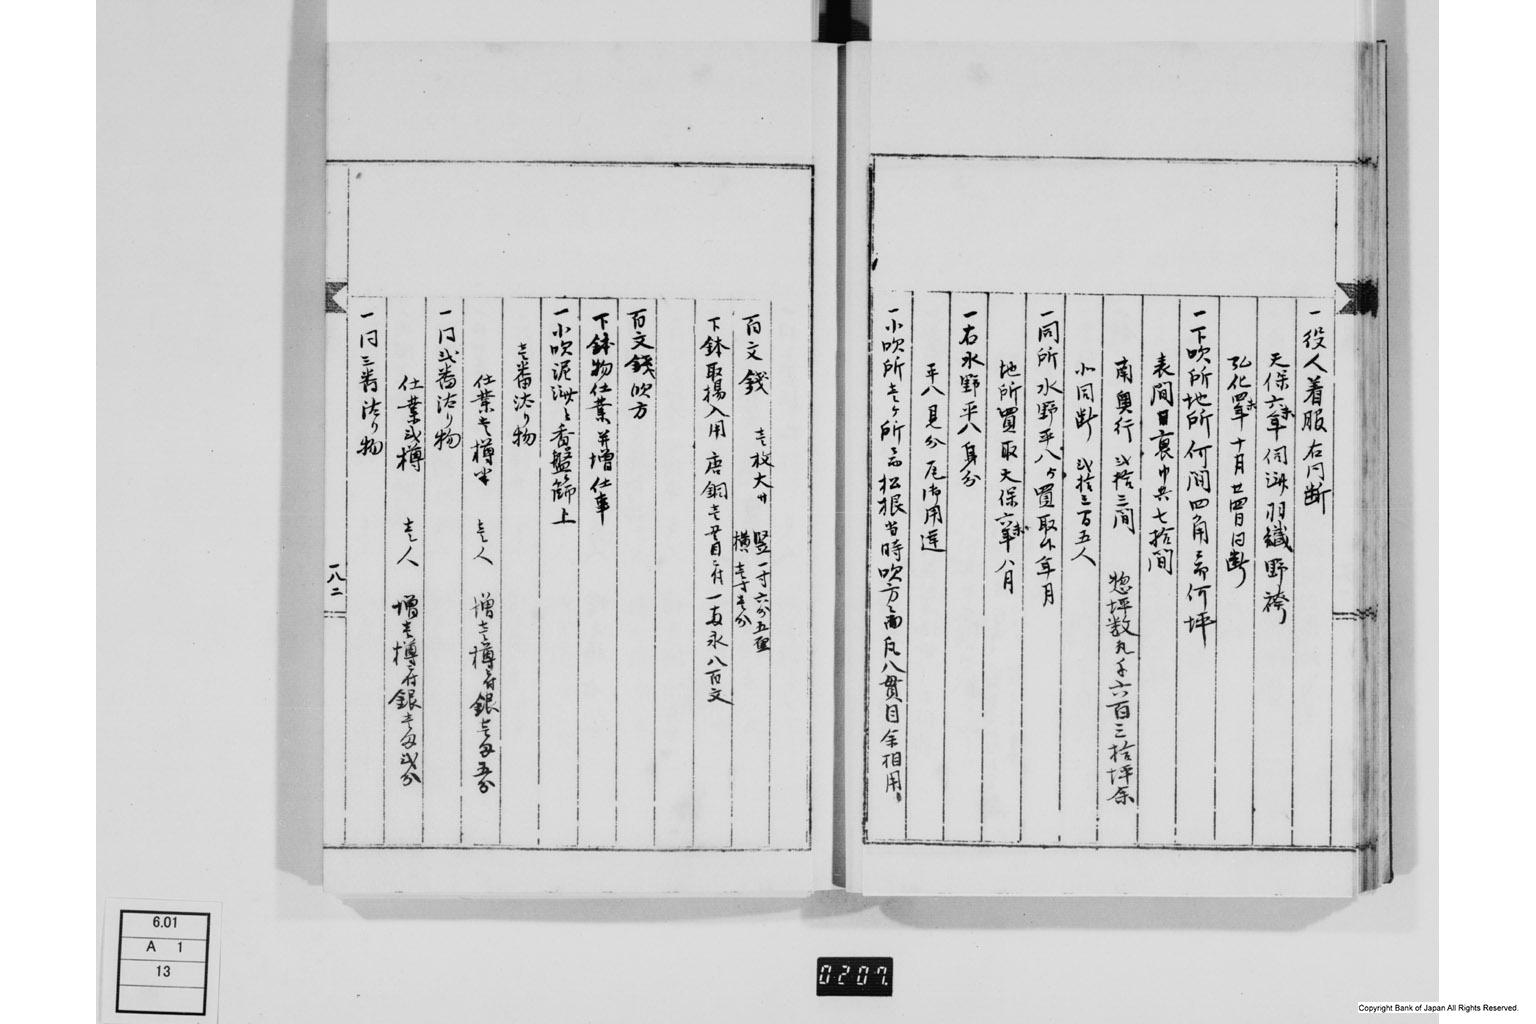 一役人着服右同断
天保六未年伺済羽織野袴
弘化四未年十月廿四日同断
一下吹所地所何間四角ニ而何坪
表間口裏巾共七拾間
南奥行 弐拾三間 惣坪数凡千六百三拾坪余
小同断 弐拾三間五尺
一同所水野平八ゟ買取候年月
地所買取天保六未年八月
一右水野平八身分
平八見分 御用達
一小吹所壱ヶ所ニ而松根当時吹方ニ而凡八貫目余相用候
百文銭 壱枚大サ 竪一寸六分五厘
横壱寸壱分
下鉢取揚入用 唐銅壱貫目ニ付一両永八百文
百文銭吹方
下鉢物仕業并増仕事
一小吹泥
壱番沽り物
仕業壱樽半 壱人 増壱樽ニ付銀壱匁五分
一同弐番沽り物
仕業弐樽 壱人 増壱樽ニ付銀壱匁弐分
一同三番沽り物
一八二
6.01
A 1
13
0207.
Copyright Bank of Japan All Rights Reserved.